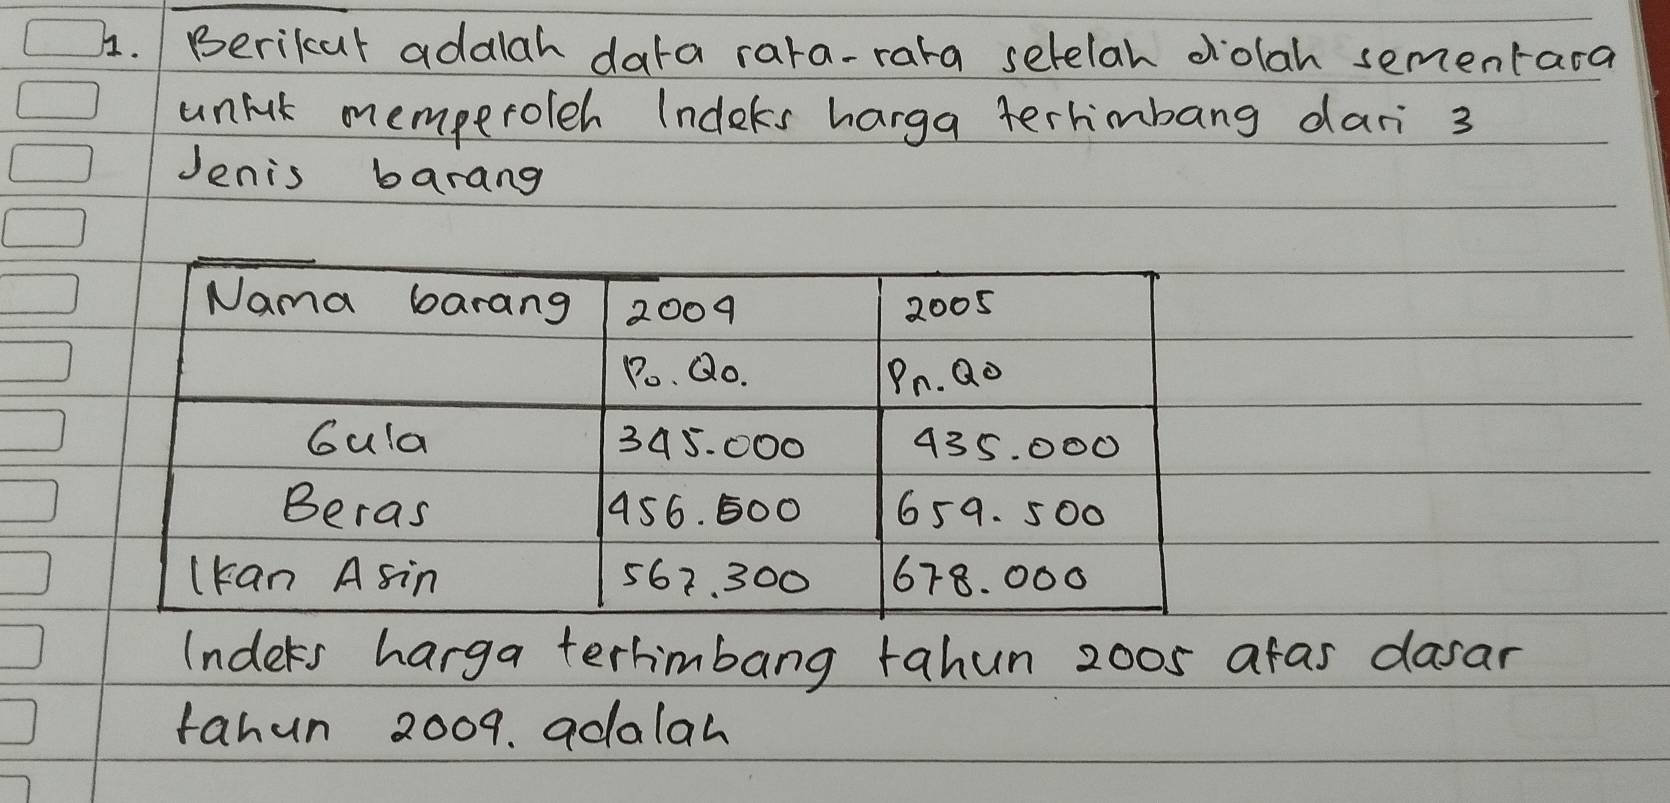 1. Berikut adalah data rata-rata setelah diolah sementara
untuk memperoleh Indeks harga tertimbang dari 3
Jenis barang
Nama barang 2004 2005
Po. Qo. Pn. Qo
Gula 345.000 435.000
Beras 456.500 654.500
Ikan Asin 567.300 678.000
Indeks harga tertimbang tahun 2005 atas dasar
tahun 2004. adalah